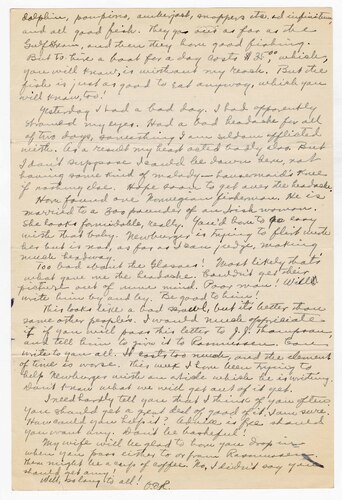 dolphins, pompino, amberjack, snappers etc. ad infinitum,
and all good fish. They go out as far as the
Gulf Stream, and there they have good fishing.
But to hire a boat for a day costs $35.00 which,
you will know, is without my reach. But the
fish is just as good to eat anyway, which you
will know, too!
Yesterday I had a bad day. I had apparently
strained my eyes. Had a bad headache for all
of two days, something I am seldom afflicted
with. As a result my heart acted badly also. But
I don't suppose I could be down here, not
having some kind of malady - housemaid's knee
if nothing else. Hope soon to get over the headache.
Have found one Norwegian fisherman. He is
married to a 300 pounder of an Irish woman.
She looks formidable, really. You'd have to go easy
with that baby. Newburger is trying to flirt with
her but is not, as far as I can judge, making
much headway.
Too bad about the Glasoes! Most likely that's
what gave me the headache. Couldn't get their
picture out of my mind. Poor man! Will
write him by and by. Be good to him.
This looks like a bad scrawl, but it's better than
some other people's. I would much appreciate
it if you will pass this letter to J.J. Thompson,
and tell him to give it to Rasmussen. Can
write to you all. It costs too much, and the element
of time is worse. This week I have been trying to
help Newburger with an article which he is writing.
Don't know what we will get out of it yet.
I need hardly tell you that I think of you often
you should get a great deal of good of it, I am sure.
How could you help it? Advice is free should
you want any. Don't be bashful!
My wife will be glad to have you drop in
when you pass either to or from Rasmussen
There might be a cup of coffee. No, I didn't say you
should get any!
Well, so long to all! OER.